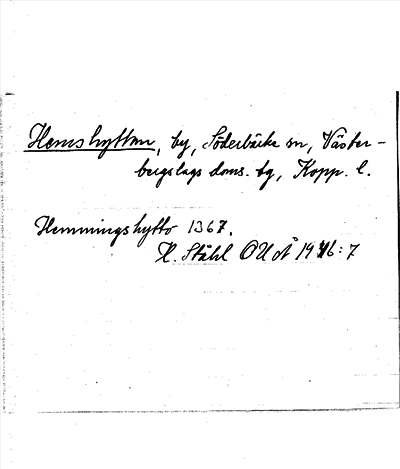 Hemshyttan, by, Söderbärke sn, Väster-
bergslags doms. tg, Kopp. l.
Hemmingshytto 1367.
H. Ståhl OUÅ 1946:7